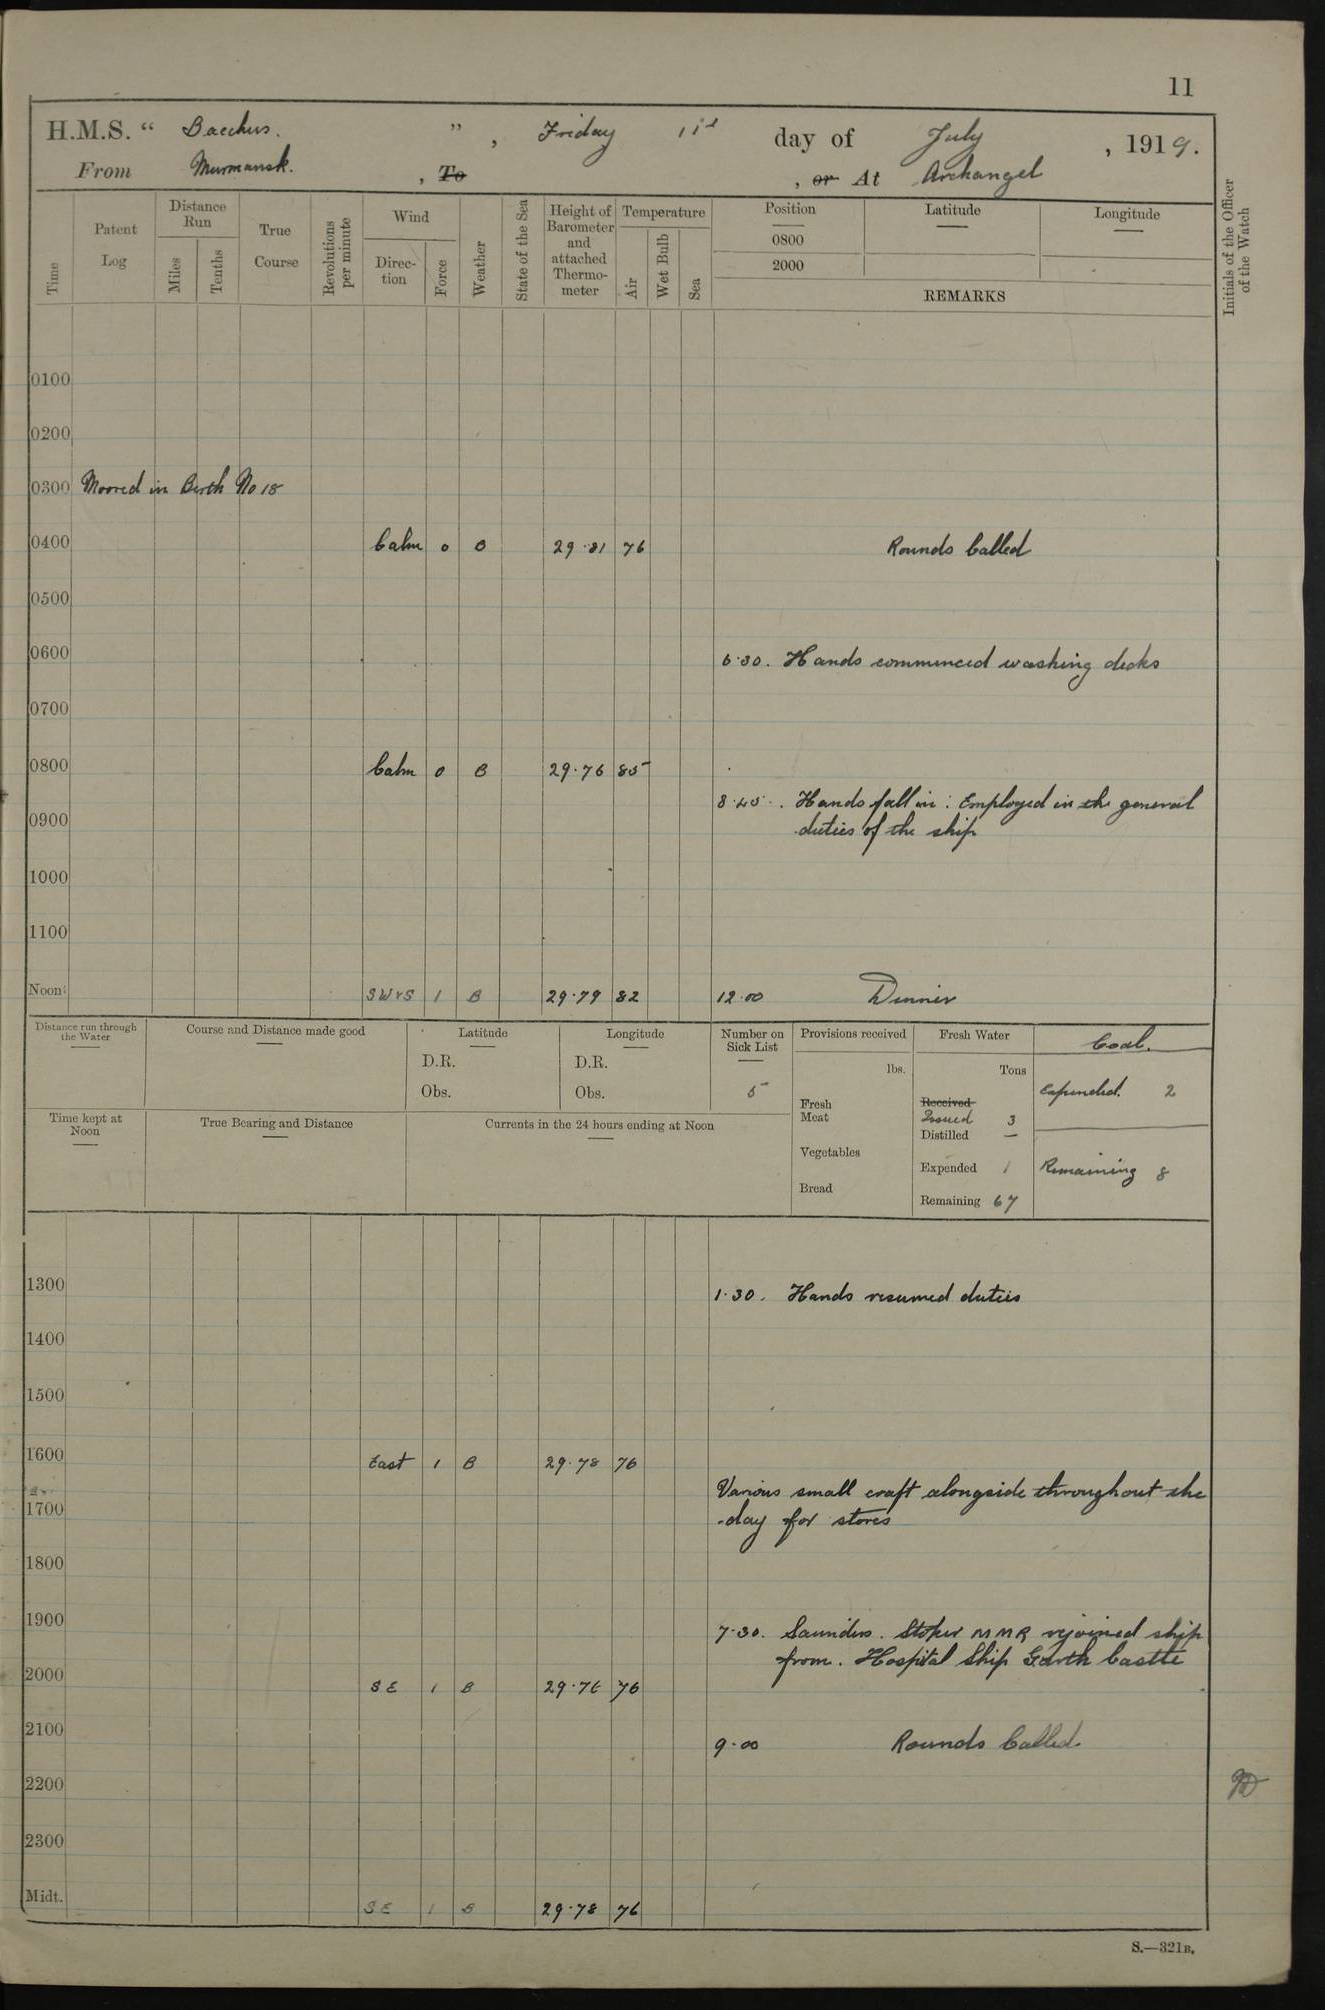 11
H.M.S. “ Bacchus. ” , Friday 11th day of July , 1919.
From Murmansk. , To , or At Archangel
Time Patent Log Distance Run Miles Tenths True Course Revolutions per minute Wind Direc-tion Force Weather State of the Sea Height of Barometer and attached Thermo-meter Temperature Air Wet Bulb Sea Position Latitude Longitude Initials of the Officer of the Watch
0800
2000
REMARKS
0100
0200
0300 Moored in Berth No 18
0400 Calm 0 O 29.81 76 Rounds Called
0500
0600 6.30. Hands commenced washing decks
0700
0800 Calm 0 B 29.76 85
8.45. Hands fall in : Employed in the general
0900 duties of the ship
1000
1100
Noon SWxS 1 B 29.79 82 12.00 Dinner
Distance run through the Water Course and Distance made good Latitude Longitude Number on Sick List Provisions received Fresh Water Coal.
D.R. D.R. lbs. Tons
Obs. Obs. 5 Expended. 2
Fresh Meat Received Issued 3
Time kept at Noon True Bearing and Distance Currents in the 24 hours ending at Noon Distilled —
Vegetables Expended 1 Remaining 8
Bread Remaining 67
1300 1.30. Hands resumed duties
1400
1500
1600 East 1 B 29.78 76
Various small craft alongside throughout the
1700 day for stores
1800
1900 7.30. Saunders. Stoker MMR rejoined ship
from. Hospital Ship Garth Castle
2000 SE 1 B 29.76 76
2100 9.00 Rounds Called.
2200
2300
Midt. SE 1 B 29.78 76
S.—321B.